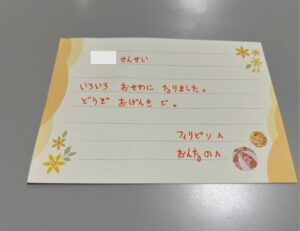 せんせい
いろいろ おせわに なりました。
どうで おげんき で。
フィリピン人
おんなの人